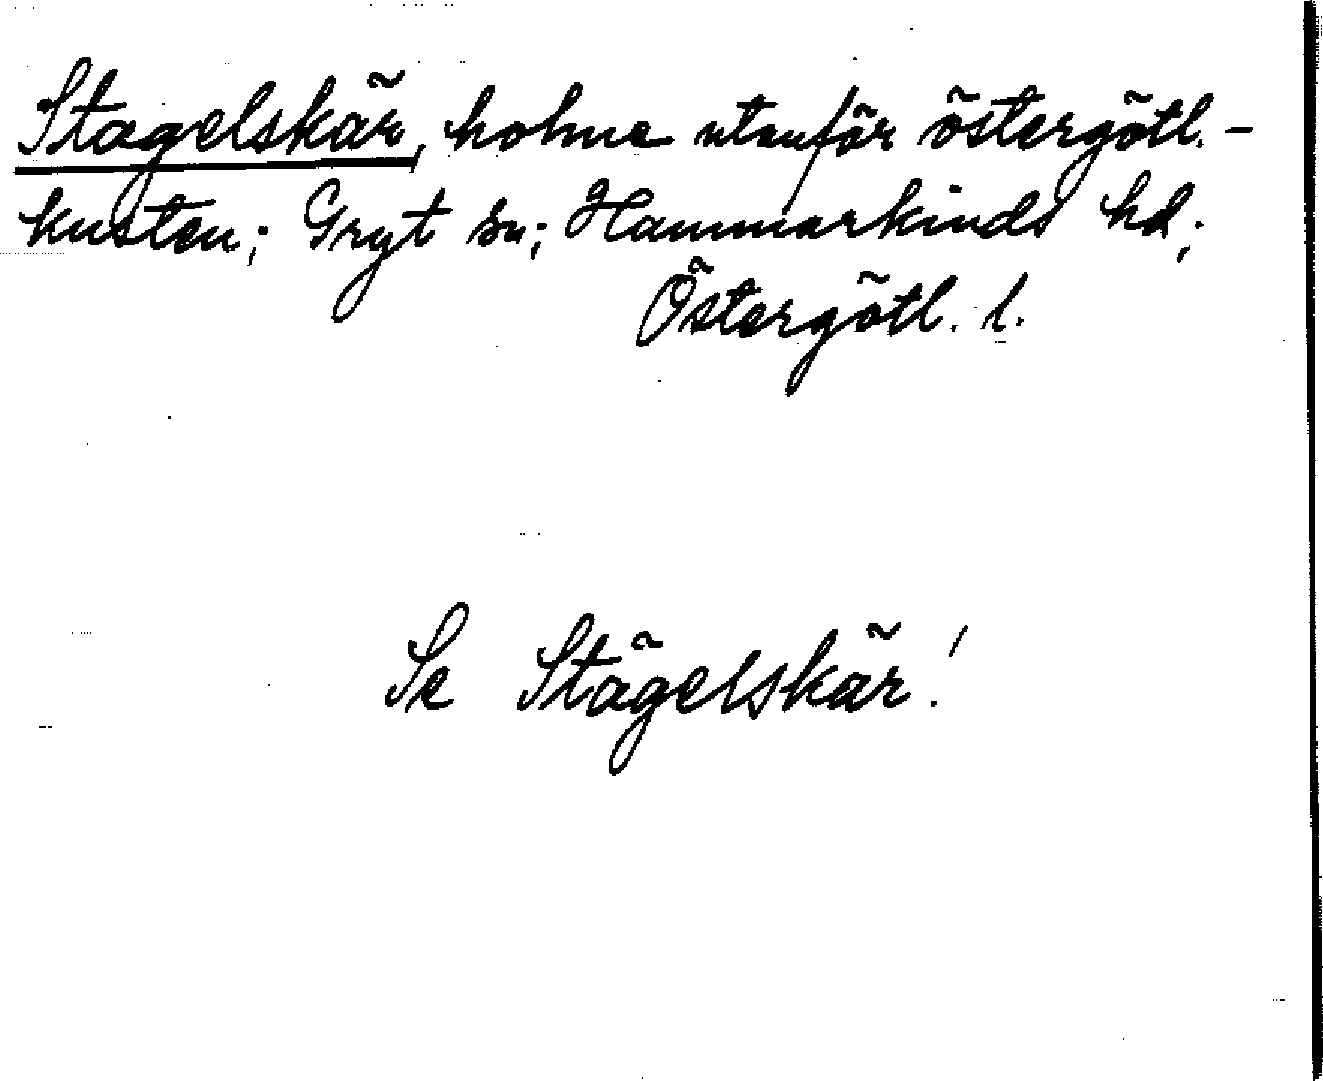 Stagelskär, holme utanför östergötl.-
kusten; Gryt sn; Hammarkinds hd;
Östergötl. l.
Se Stägelskär!